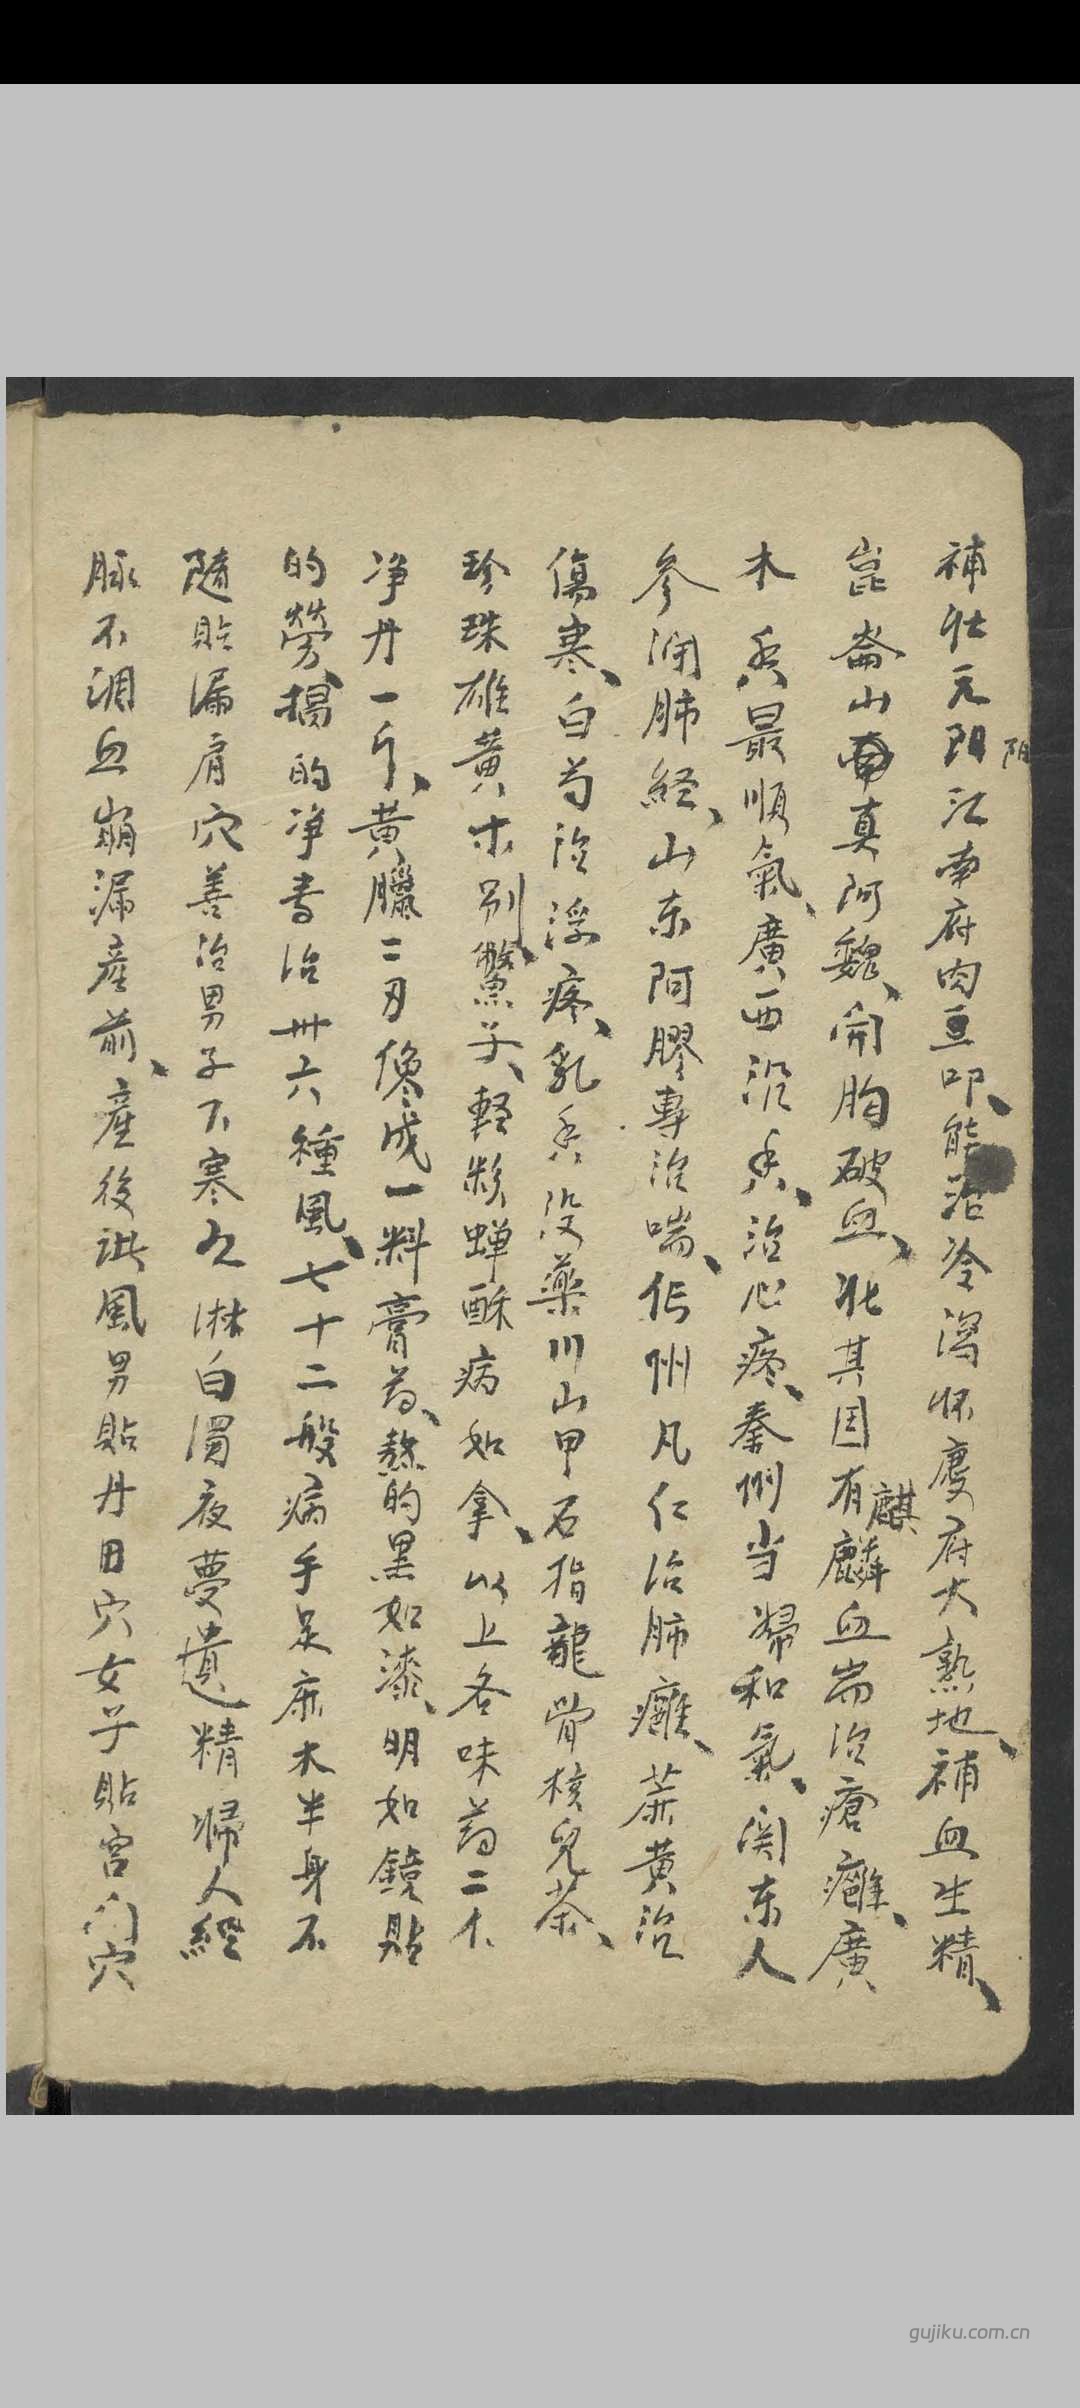 補壮元阳江南府肉豆叩、能治冷瀉怀慶府大熟地、補血生精、
阳
崑崙山真阿魏、開胸破血、北其因有麟血耑治瘡癰、廣
麒
木香最順氣、廣西沉香、治心疼、秦州当歸和氣、関东人
参潤肺経、山东阿膠專治喘、作州凡仁治肺癰、蔴黄治
傷寒、白芍治浮疼、乳香没藥川山甲石指龍骨核兒茶、
珍珠雄黄木別鱉子、軽粉蝉酥病如拿、以上各味药二
净丹一斤、黄臘二刃儳成一料膏药、熬的黑如漆、明如鏡貼
的勞、揭的净耑治卅六種風、七十二般病手足麻木半身不
隨貼漏肩穴善治男子下寒久淋白濁夜夢遺精婦人經
脉不調血崩漏産前、産後誂風男貼丹田穴女子貼宫门穴
gujiku.com.cn